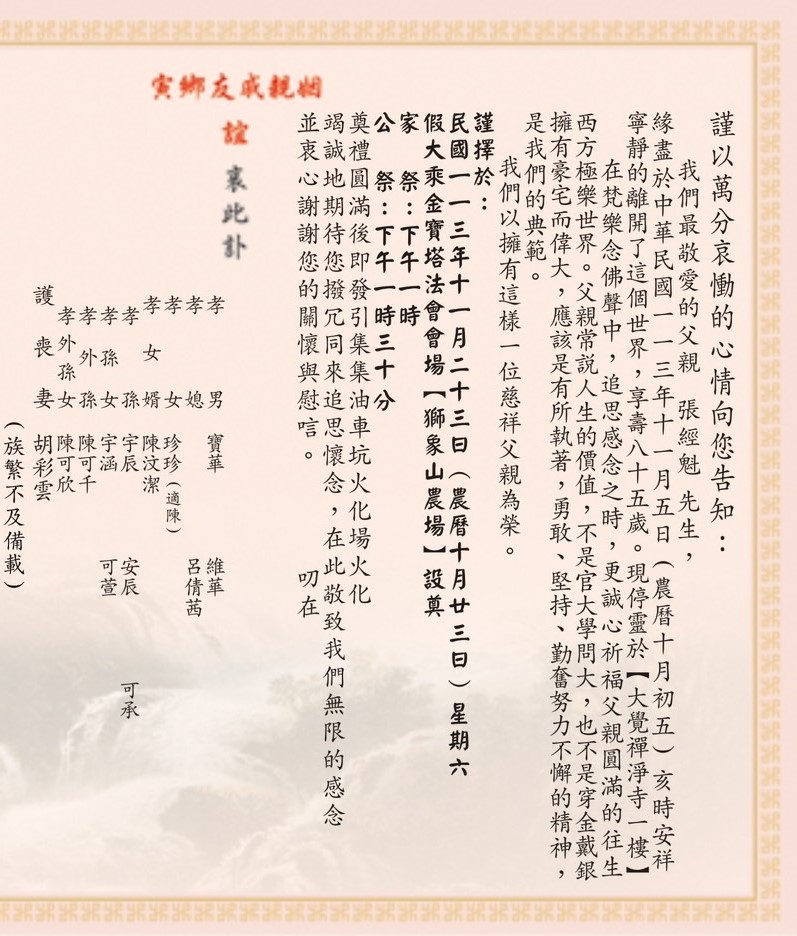 謹以萬分哀慟的心情向您告知：
我們最敬愛的父親　張經魁　先生，
緣盡於中華民國一一三年十一月五日（農曆十月初五）亥時安祥
寧靜的離開了這個世界，享壽八十五歲。現停靈於【大覺禪淨寺一樓】
在梵樂念佛聲中，追思感念之時，更誠心祈福父親圓滿的往生
西方極樂世界。父親常説人生的價值，不是官大學問大，也不是穿金戴銀
擁有豪宅而偉大，應該是有所執著，勇敢、堅持、勤奮努力不懈的精神，
是我們的典範。
我們以擁有這樣一位慈祥父親為榮。
謹擇於：
民國一一三年十一月二十三日（農曆十月廿三日）星期六
假大乘金寶塔法會會場【獅象山農場】設奠
家　祭：下午一時
公　祭：下午一時三十分
奠禮圓滿後即發引集集油車坑火化場火化
竭誠地期待您撥冗同來追思懷念，在此敬致我們無限的感念
並衷心謝謝您的關懷與慰唁。
叨在
姻親戚友鄉寅
誼　哀此訃
孝男　寶華　維華
孝媳　呂倩茜
孝女　珍珍（適陳）
孝女婿　陳汶潔
孝孫　宇辰　安辰　可承
孝孫女　宇涵　可萱
孝外孫　陳可千
孝外孫女　陳可欣
護喪妻　胡彩雲
（族繁不及備載）